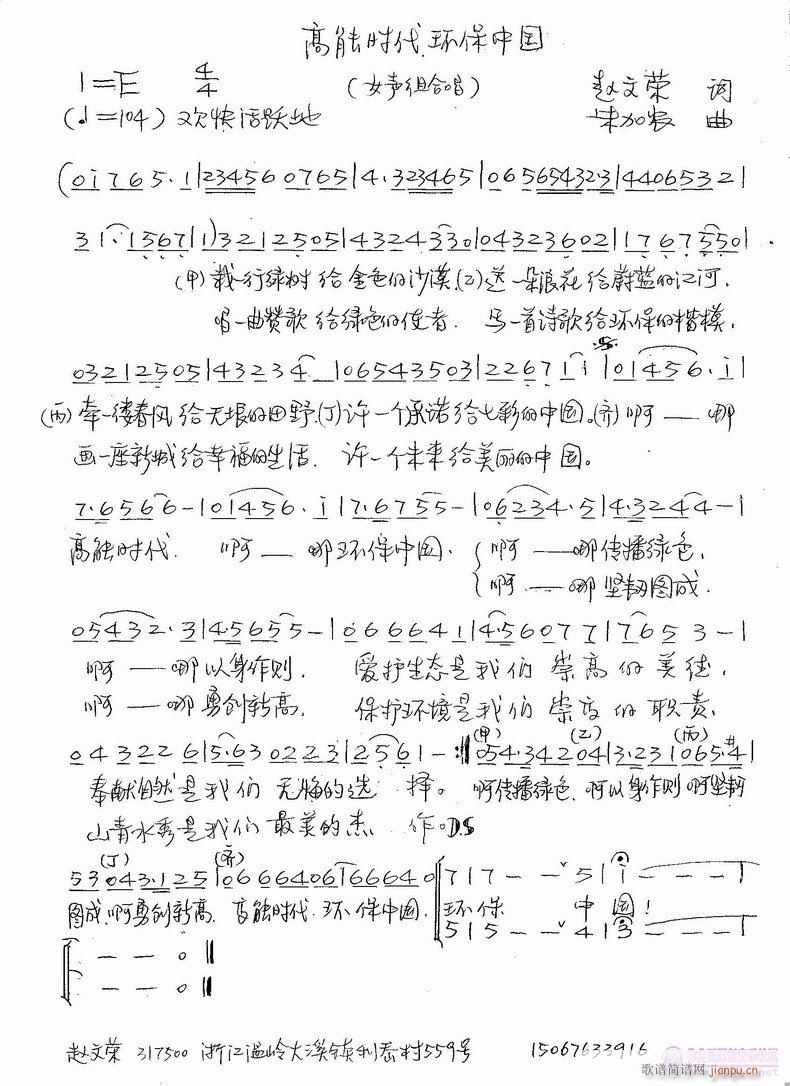 高能时代、环保中国
1=E 4/4 (女声组合唱) 赵文荣 词
(♩=104) 欢快活跃地 朱加农 曲
(0i765·1|234560765|4·323465|065654323·3|44065321
31·1567|1)3212505|4324330|04323602|1767550|
(甲)栽一行绿树给金色的沙漠,(乙)送一朵浪花给蔚蓝的江河,
唱一曲赞歌给绿色的使者. 写一首诗歌给环保的楷模,
03212505|43234_|06543503|22671i|01456·i|
(丙)牵一缕春风给无垠的田野,(丁)许一个承诺给七彩的中国。(齐)啊——哪
画一座新城给幸福的生活. 许一个未来给美丽的中国。
7·6566-|01456·i|7·6755-|06234·5|4·3244-|
高能时代. 啊——哪环保中国. 啊——哪传播绿色,
啊——哪坚韧图成.
05432·3|4·5655-|0666641|4560771|7653-|
啊——哪以身作则, 爱护生态是我们崇高的美德,
啊——哪勇创新高. 保护环境是我们崇高的职责,
043226|5·630223|2561-:‖(甲)054·34(乙)204|3·23(丙)1065·#4|
奉献自然是我们无悔的选择。 啊传播绿色,啊以身作则啊坚韧
山青水秀是我们最美的杰作。DS
53(丁)043·125|(齐)06664061666640|717--ˇ5|i---|
图成,啊勇创新高. 高能时代.环保中国. 环保 中国!
515--ˇ4|3---|
--0‖
--0‖
赵文荣 317500 浙江温岭大溪镇利岙村559号 15067633916
歌谱简谱网 jianpu.cn